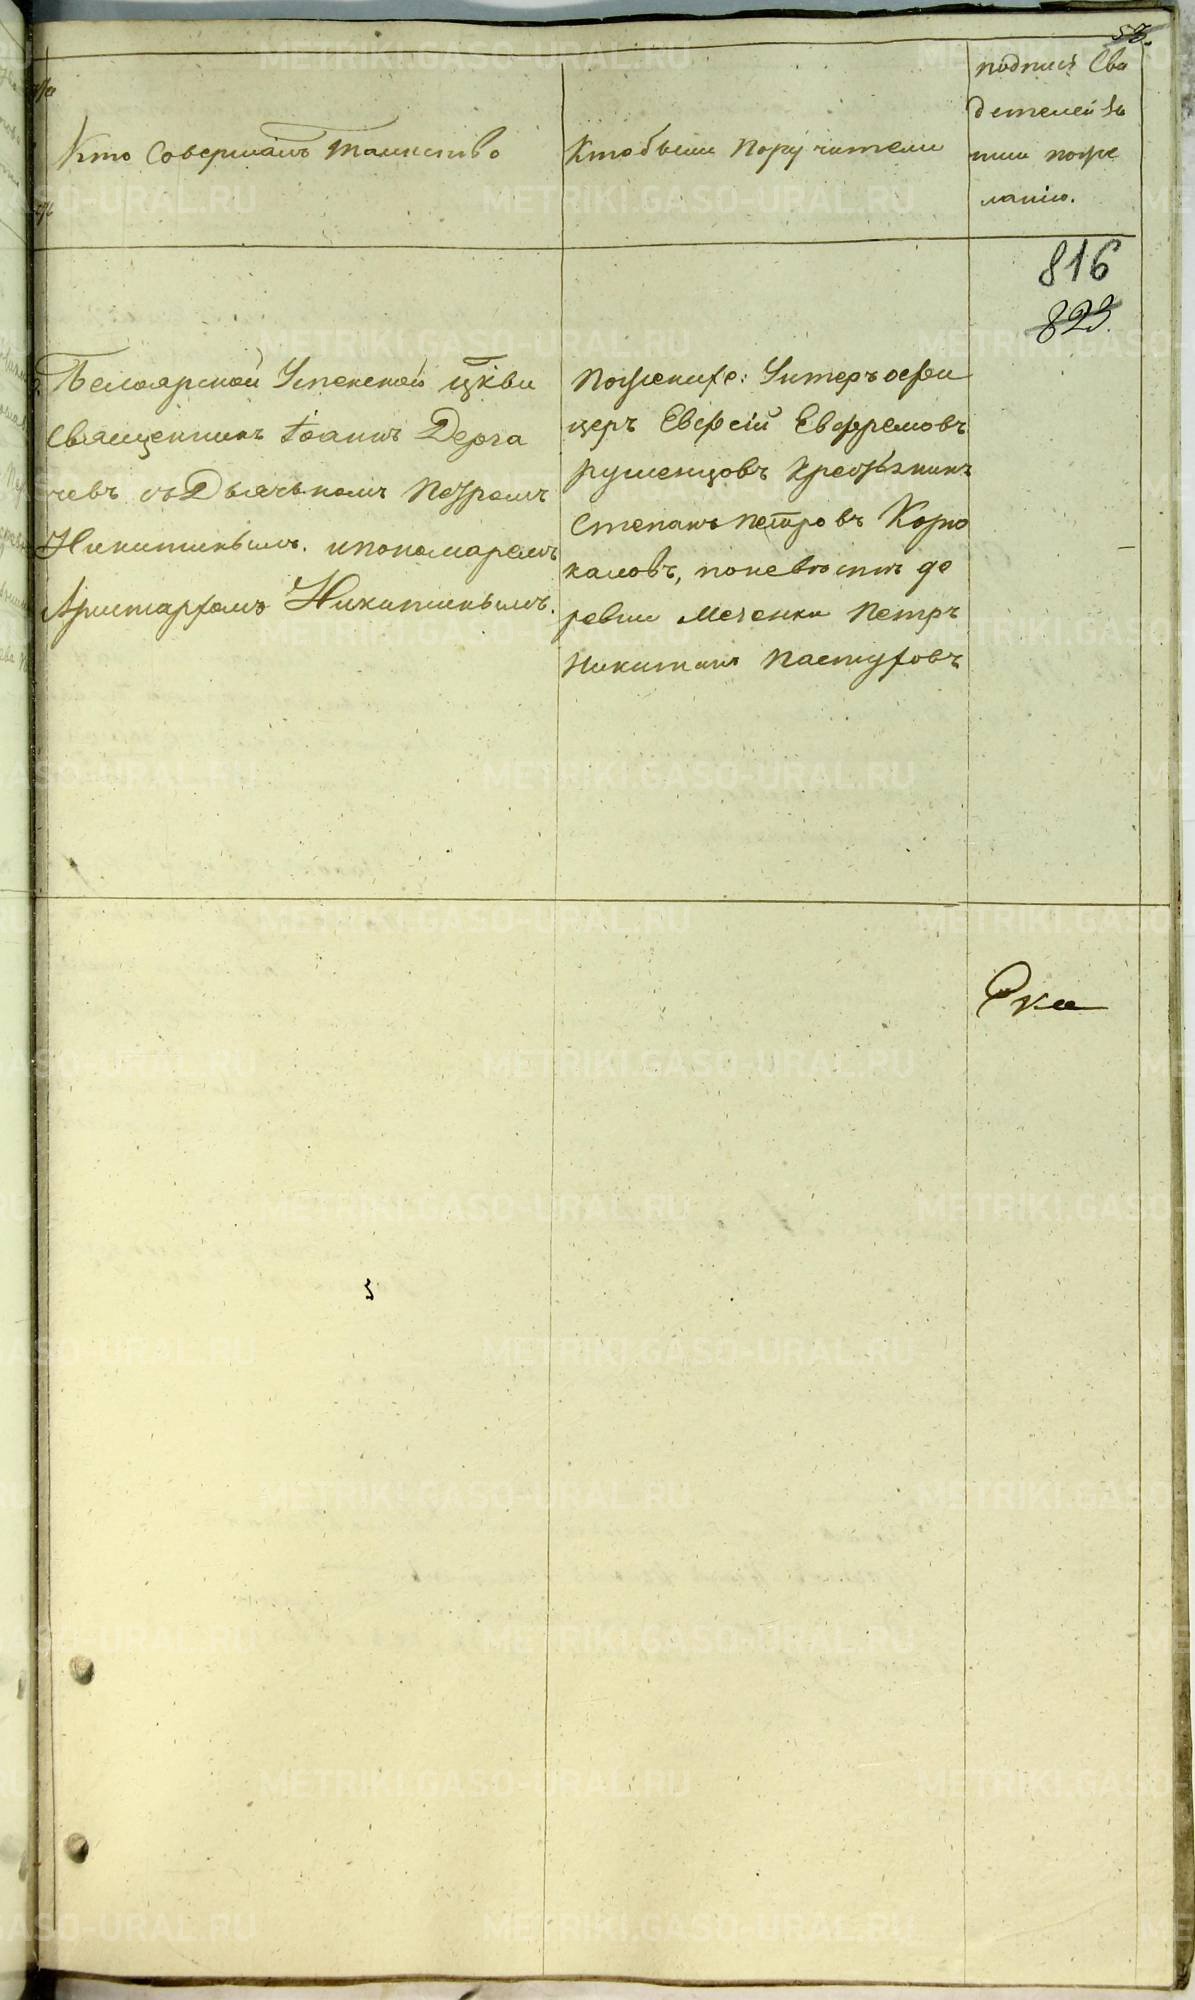 58.
Кто Совершалъ Таинство
Кто были Поручители
подпись Сви
детелей За
писи по же
ланію.
816
823.
Белоярской Успенской цркви
Священникъ Іоаннъ Дерга
чевъ съ Дьячькомъ Петромъ
Никитинымъ. и пономаремъ
Аристархомъ Никитинымъ.
По женихе: Унтеръ офи
церъ Евсій Евфремовъ
Руменцовъ крестьянинъ
Степанъ Петровъ Коро
каловъ, по невѣстѣ де
ревни Меченки Петръ
Никитинъ Пастуховъ